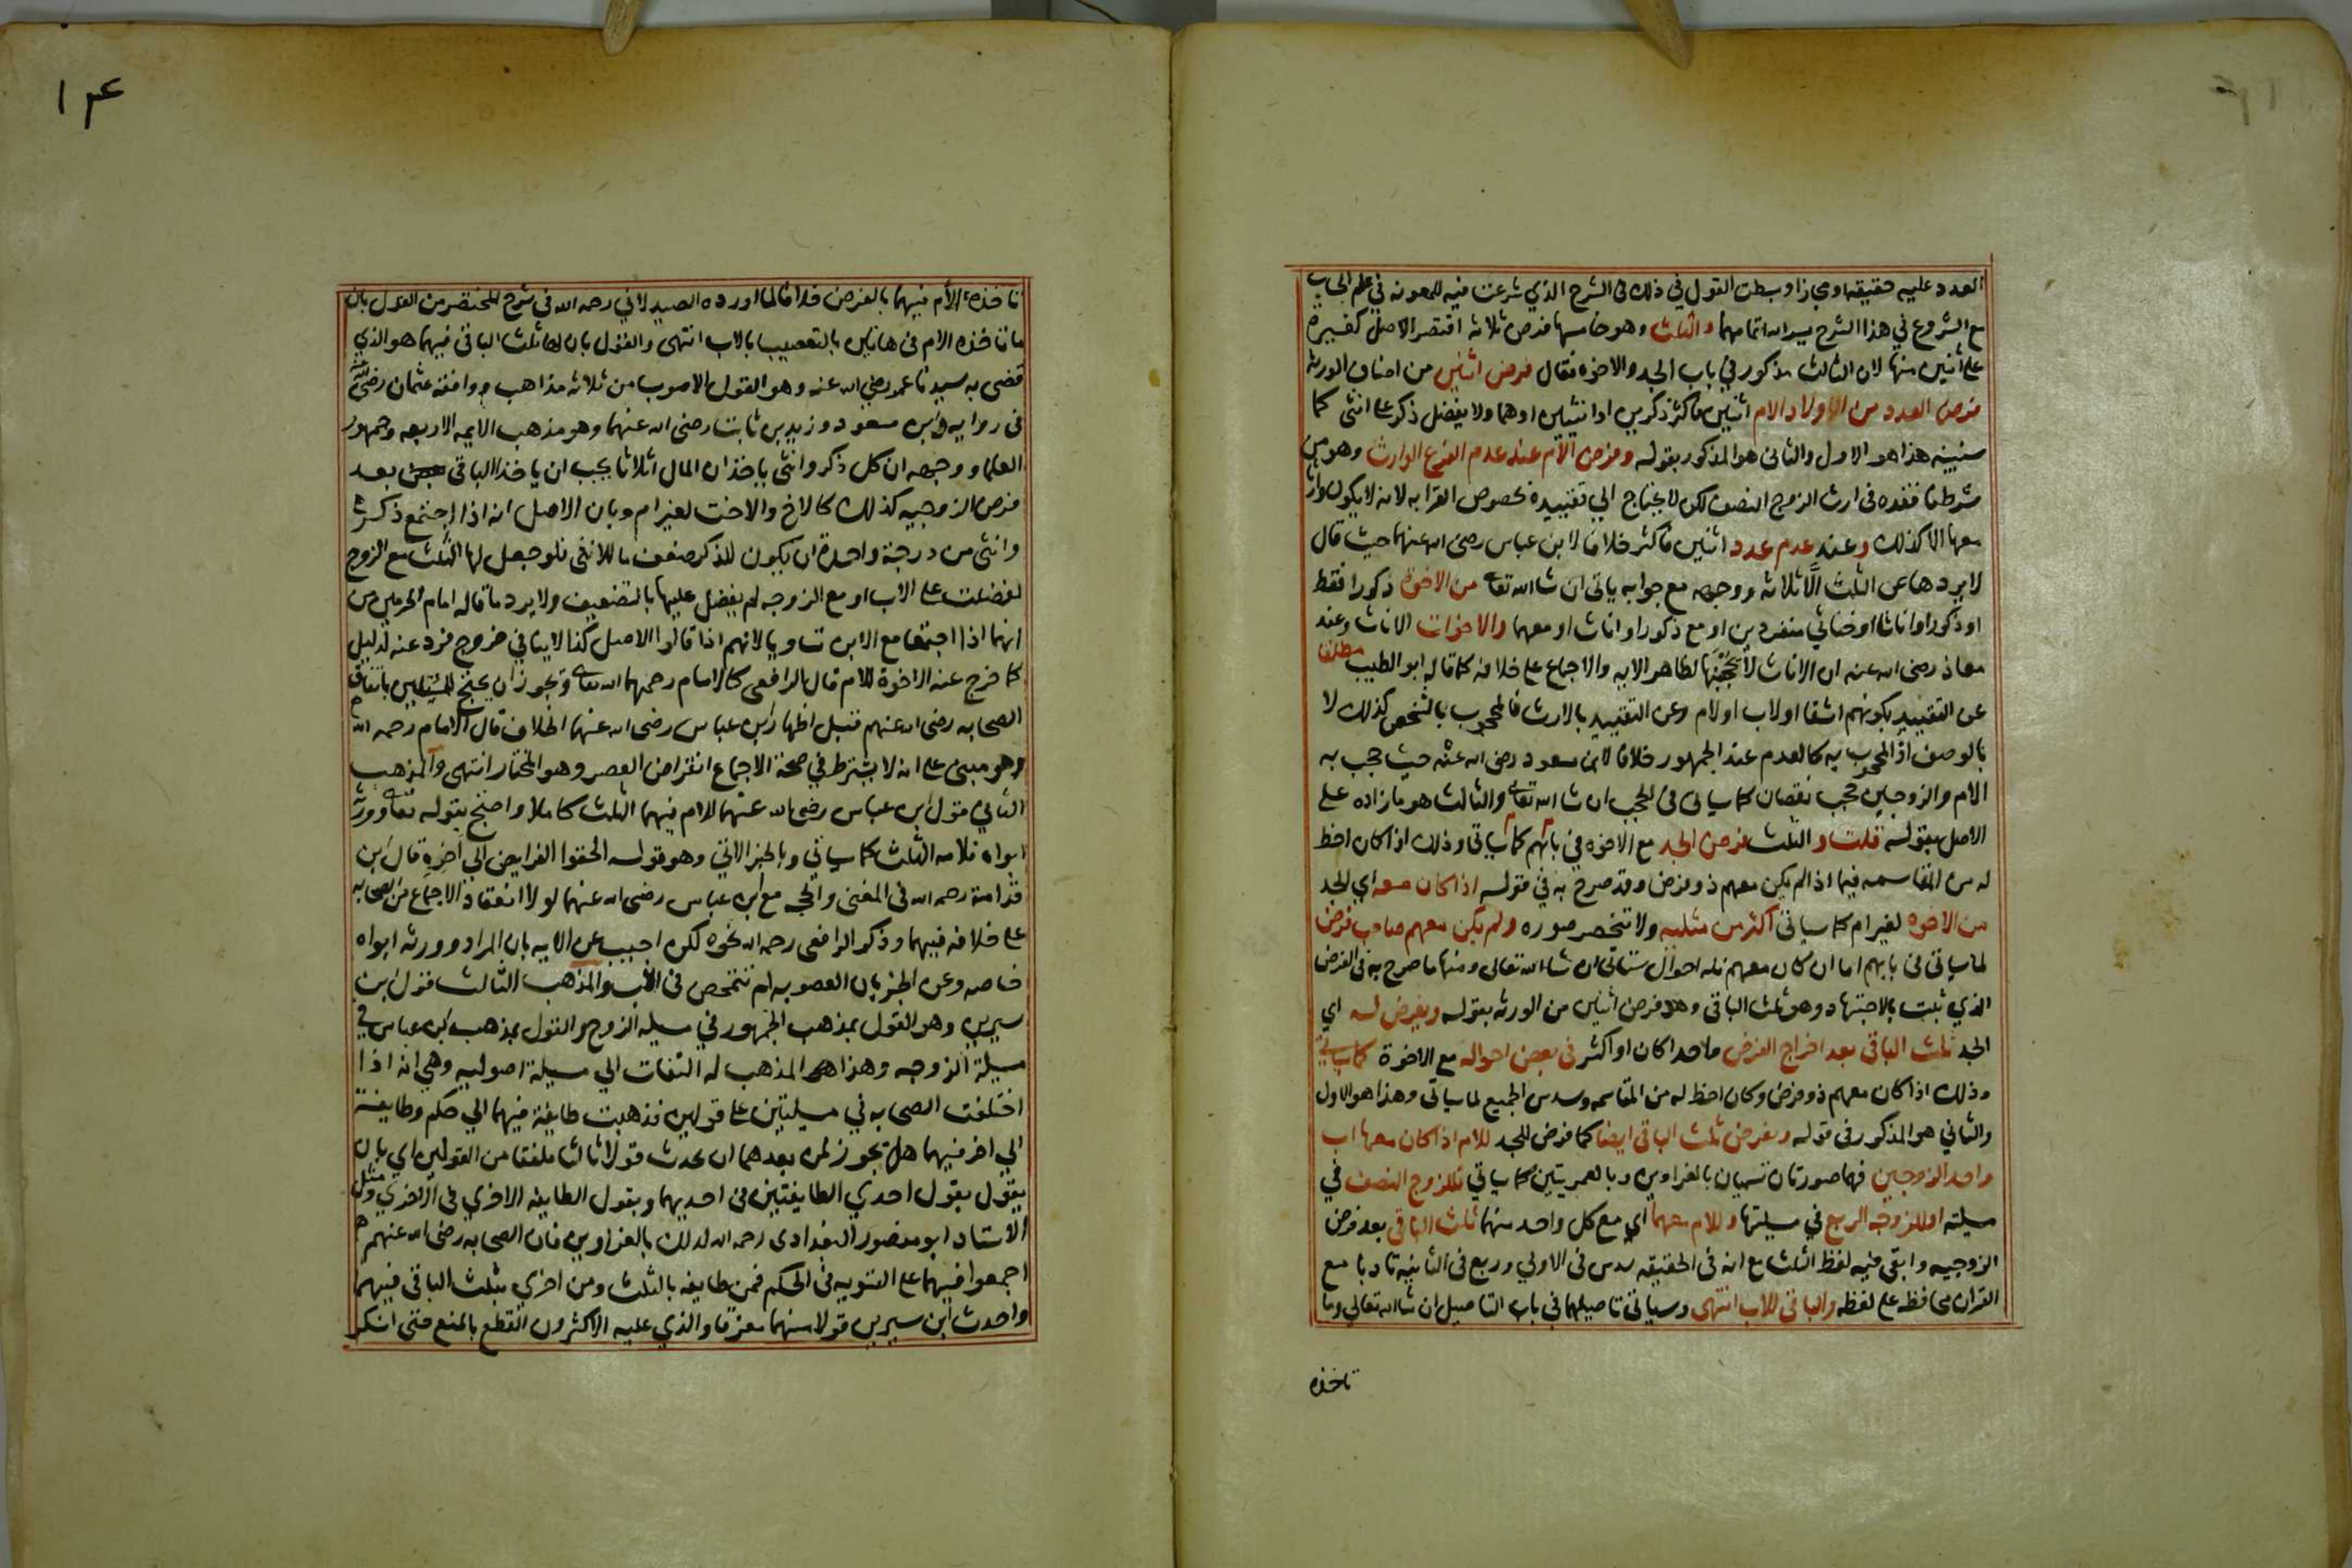 العدد عليه حقيقه او مجازا وبسطت القول في ذلك في الشرح الذي شرعت فيه للمعونه في علم الحساب
مع الشروع في هذا الشرح يسر الله اتمامهما والثلث وهو خامسها فرض ثلاثه اقتصر الاصل كغيره
على اثنين منها لان الثالث مذكور في باب الجد والاخوه فقال فرض اثنين من اصناف الورثه
فرض العدد من اولاد الام اثنين فاكثر ذكرين او انثيين او هما ولا يفضل ذكر على انثى كما
سنبينه هذا هو الاول والثانى هو المذكور بقوله وفرض الام عند عدم الفرع الوارث وهو من
شرطنا فقده فى ارث الزوج النصف لكن لا يحتاج الي تقييده بخصوص القرابه لانه لا يكون وارثا
معها الا كذلك وعند عدم عدد اثنين فاكثر خلافا لابن عباس رضى الله عنهما حيث قال
لا يردها عن الثلث الا ثلاثه ووجهه مع جوابه ياتى ان شا الله تعالى من الاخوة ذكورا فقط
او ذكورا واناثا او خناثي منفردين او مع ذكور او اناث او معهما والاخوات الاناث وعند
معاذ رضى الله عنه ان الاناث لا يحجبنها لظاهر الايه والاجماع على خلافه كما قاله ابو الطيب مطلقا
عن التقييد بكونهم اشقا او لاب او لام وعن التقييد بالارث فالمحجوب بالشخص كذلك لا
بالوصف اذ المحجوب به كالعدم عند الجمهور خلافا لابن مسعود رضى الله عنه حيث حجب به
الام والزوجين حجب نقصان كما سياتى فى الحجب ان شا الله تعالى والثالث هو ما زاده على
الاصل بقوله قلت والثلث فرض الجد مع الاخوه في بابهم كما سياتى وذلك اذا كان احظ
له من المقاسمه فيما اذا لم يكن معهم ذو فرض وقد صرح به في قوله اذا كان معه اي الجد
من الاخوه لغير ام كما سياتى اكثر من مثليه ولا تنحصر صوره ولم يكن معهم صاحب فرض
لما سياتى فى بابهم اما ان كان معهم فله احوال ستاتى ان شا الله تعالى ومنها ما صرح به فى الفرض
الذي ثبت بالاجتهاد وهو ثلث الباقى وهو فرض اثنين من الورثه بقوله ويفرض له اي
الجد ثلث الباقى بعد اخراج الفرض واحدا كان او اكثر فى بعض احواله مع الاخوة كما سياتي
وذلك اذا كان معهم ذو فرض وكان احظ له من المقاسمه وسدس الجميع لما سياتى وهذا هو الاول
والثاني هو المذكور فى قوله ويفرض ثلث الباقى ايضا كما فرض للجد للام اذا كان معها اب
واحد الزوجين فهما صورتان تسميان بالغراوين وبالعمريتين كما سياتي فللزوج النصف في
مسيلته او للزوجه الربع في مسيلتها وللام معهما اي مع كل واحد منهما ثلث الباقى بعد فرض
الزوجيه وابقى فيه لفظ الثلث مع انه فى الحقيقه سدس فى الاولي وربع فى الثانيه تادبا مع
القران محافظه على لفظه والباقى للاب انتهى وسياتى تاصيلهما فى باب التاصيل ان شا الله تعالي وما
تاخذه
١٤
تاخذه الأم فيهما بالفرض خلافا لما اورده الصيدلاني رحمه الله فى شرح المختصر من القول بان
ما تاخذه الام فى هاتين بالتعصيب بالاب انتهى والقول بان لها ثلث الباقى فيهما هو الذي
قضى به سيدنا عمر رضي الله عنه وهو القول الاصوب من ثلاثه مذاهب ووافقه عثمان رضى الله عنه
فى روايه وابن مسعود وزيد بن ثابت رضى الله عنهما وهو مذهب الايمه الاربعه وجمهور
العلما ووجهه ان كل ذكر وانثى ياخذان المال اثلاثا يجب ان ياخذا الباقى بعد
فرض الزوجيه كذلك كالاخ والاخت لغير ام وبان الاصل انه اذا اجتمع ذكر
وانثى من درجة واحدة ان يكون للذكر ضعف ما للانثى فلو جعل لها الثلث مع الزوج
لفضلت على الاب او مع الزوجه لم يفضل عليها بالتضعيف ولا يرد ما قاله امام الحرمين من
انهما اذا اجتمعا مع الابن تساويا لانهم اذا قالوا الاصل كذا لا ينافي خروج فرد عنه لدليل
كما خرج عنه الاخوة للام قال الرافعى كالامام رحمهما الله تعالى ويجوز ان يحتج للمسيلتين باتفاق
الصحابه رضى الله عنهم قبل اظهار ابن عباس رضى الله عنهما الخلاف قال الامام رحمه الله
وهو مبنى على انه لا يشترط في صحة الاجماع انقراض العصر وهو المختار انتهى والمذهب
الثاني قول ابن عباس رضى الله عنهما للام فيهما الثلث كاملا واحتج بقوله تعالى وورثه
ابواه فلامه الثلث كما سياتي وبالخبر الاتي وهو قوله الحقوا الفرايض الي اخره قال ابن
قدامة رحمه الله فى المغنى والحجه مع ابن عباس رضى الله عنهما لولا انعقاد الاجماع من الصحابه
على خلافه فيهما وذكر الرافعى رحمه الله نحوه لكن اجيب عن الايه بان المراد وورثه ابواه
خاصه وعن الخبر بان العصوبه لم تتمحض فى الاب والمذهب الثالث قول ابن
سيرين وهو القول بمذهب الجمهور في مسيله الزوج والقول بمذهب ابن عباس في
مسيلة الزوجه وهذا المذهب له التفات الي مسيلة اصوليه وهي انه اذا
اختلفت الصحابه في مسيلتين على قولين فذهبت طايفة فيهما الي حكم وطايفة
الي اخر فيهما هل يجوز لمن بعدهما ان يحدث قولا ثالثا ملفقا من القولين اي بان
يقول بقول احدي الطايفتين فى احديهما وبقول الطايفه الاخري فى الاخري ومثل
الاستاد ابو منصور البغدادى رحمه الله لذلك بالغراوين فان الصحابه رضى الله عنهم
اجمعوا فيهما على التسويه فى الحكم فمن طايفه بالثلث ومن اخري بثلث الباقى فيهما
واحدث ابن سيرين قولا منهما مفرقا والذي عليه الاكثرون القطع بالمنع حتى انكر